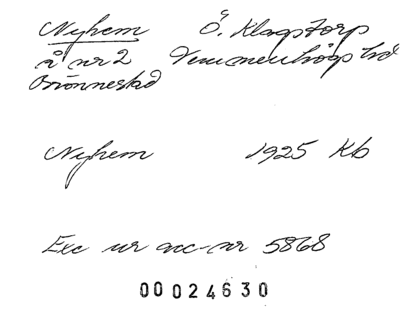 Nyhem Ö. Klagstorp
å nr 2 Vemmenhögs hd
Brönnestad
Nyhem 1925 Kb
Exc ur acc-nr 5868
00024630